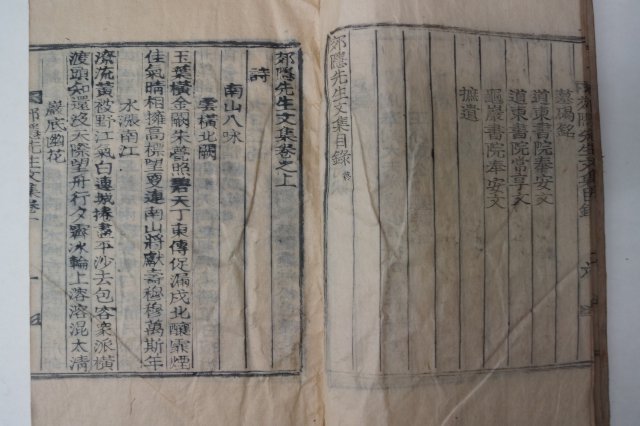 墓碣銘
道東書院奉安文
道東書院常享文
龜巖書院奉安文
摭遺
郊隱先生文集目錄
郊隱先生文集卷之上
詩
南山八咏
雲橫北闕
玉葉橫金闕朱甍照碧天丁東傳促漏戌北釀霏煙
佳氣晴相擁高標望更連南山將獻壽穆穆萬斯年
水漲南江
濟流黃被野江氣白連城據盡平沙去包容衆派橫
渡頭知還沒天際望舟行夕霽冰輪上溶溶混太淸
巖底幽花
郊隱先生文集卷